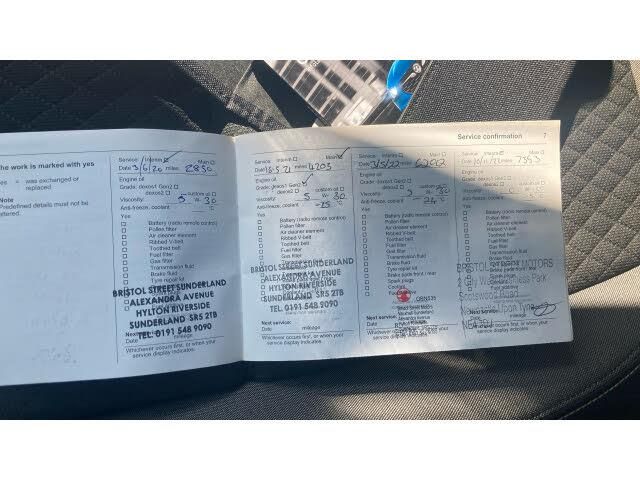 the work is marked with yes
= was exchanged or
replaced
Note
Predefined details must not be
altered.
Service: Interim Main
Date 3/6/20 miles 2850
Engine oil
Grade: dexos1 Gen2 custom oil
dexos2
Viscosity: 5 W 30
Anti-freeze, coolant °C
Yes
Battery (radio remote control)
Pollen filter
Air cleaner element
Ribbed V-belt
Toothed belt
Fuel filter
Gas filter
Transmission fluid
Brake fluid
Tyre repair kit
BRISTOL STREET SUNDERLAND
ALEXANDRA AVENUE
HYLTON RIVERSIDE
SUNDERLAND SR5 2TB
TEL: 0191 548 9090
Date mileage
Whichever occurs first, or when your
service display indicates.
Service: Interim Main
Date 18-5-21 miles 4203
Engine oil
Grade: dexos1 Gen2
dexos2 custom oil
Viscosity: 5 W 30
Anti-freeze, coolant -25 °C
Yes
Battery (radio remote control)
Pollen filter
Air cleaner element
Ribbed V-belt
Toothed belt
Fuel filter
Gas filter
Transmission fluid
BRISTOL STREET SUNDERLAND
ALEXANDRA AVENUE
HYLTON RIVERSIDE
SUNDERLAND SR5 2TB
TEL: 0191 548 9090
Next service:
Date mileage
Whichever occurs first, or when your
service display indicates.
Service: Interim Main
Date 3/5/22 miles
Engine oil
Grade: dexos1 Gen2
dexos2 custom oil
Viscosity: 5 W 30
Anti-freeze, coolant °C
Yes
Battery (radio remote control)
Pollen filter
Air cleaner element
Ribbed V-belt
Toothed belt
Fuel filter
Gas filter
Transmission fluid
Brake fluid
Tyre repair kit
Brake pads front / rear
Spark plugs
Coolant
Bristol Street Motors
Vauxhall Sunderland
Alexandra Avenue
Next service:
Date
Whichever occurs first, or when your
service display indicates.
Service confirmation 7
Service: Interim Main
Date 10/11/22 miles 7393
Engine oil
Grade: dexos1 Gen2
dexos2 custom oil
Viscosity: W 30
Anti-freeze, coolant °C
Yes
Battery (radio remote control)
Pollen filter
Air cleaner element
Ribbed V-belt
Toothed belt
Fuel filter
Gas filter
BRISTOL STREET MOTORS
Park
Scotswood Road
Next service:
mileage
Whichever occurs first, or when your
service display indicates.